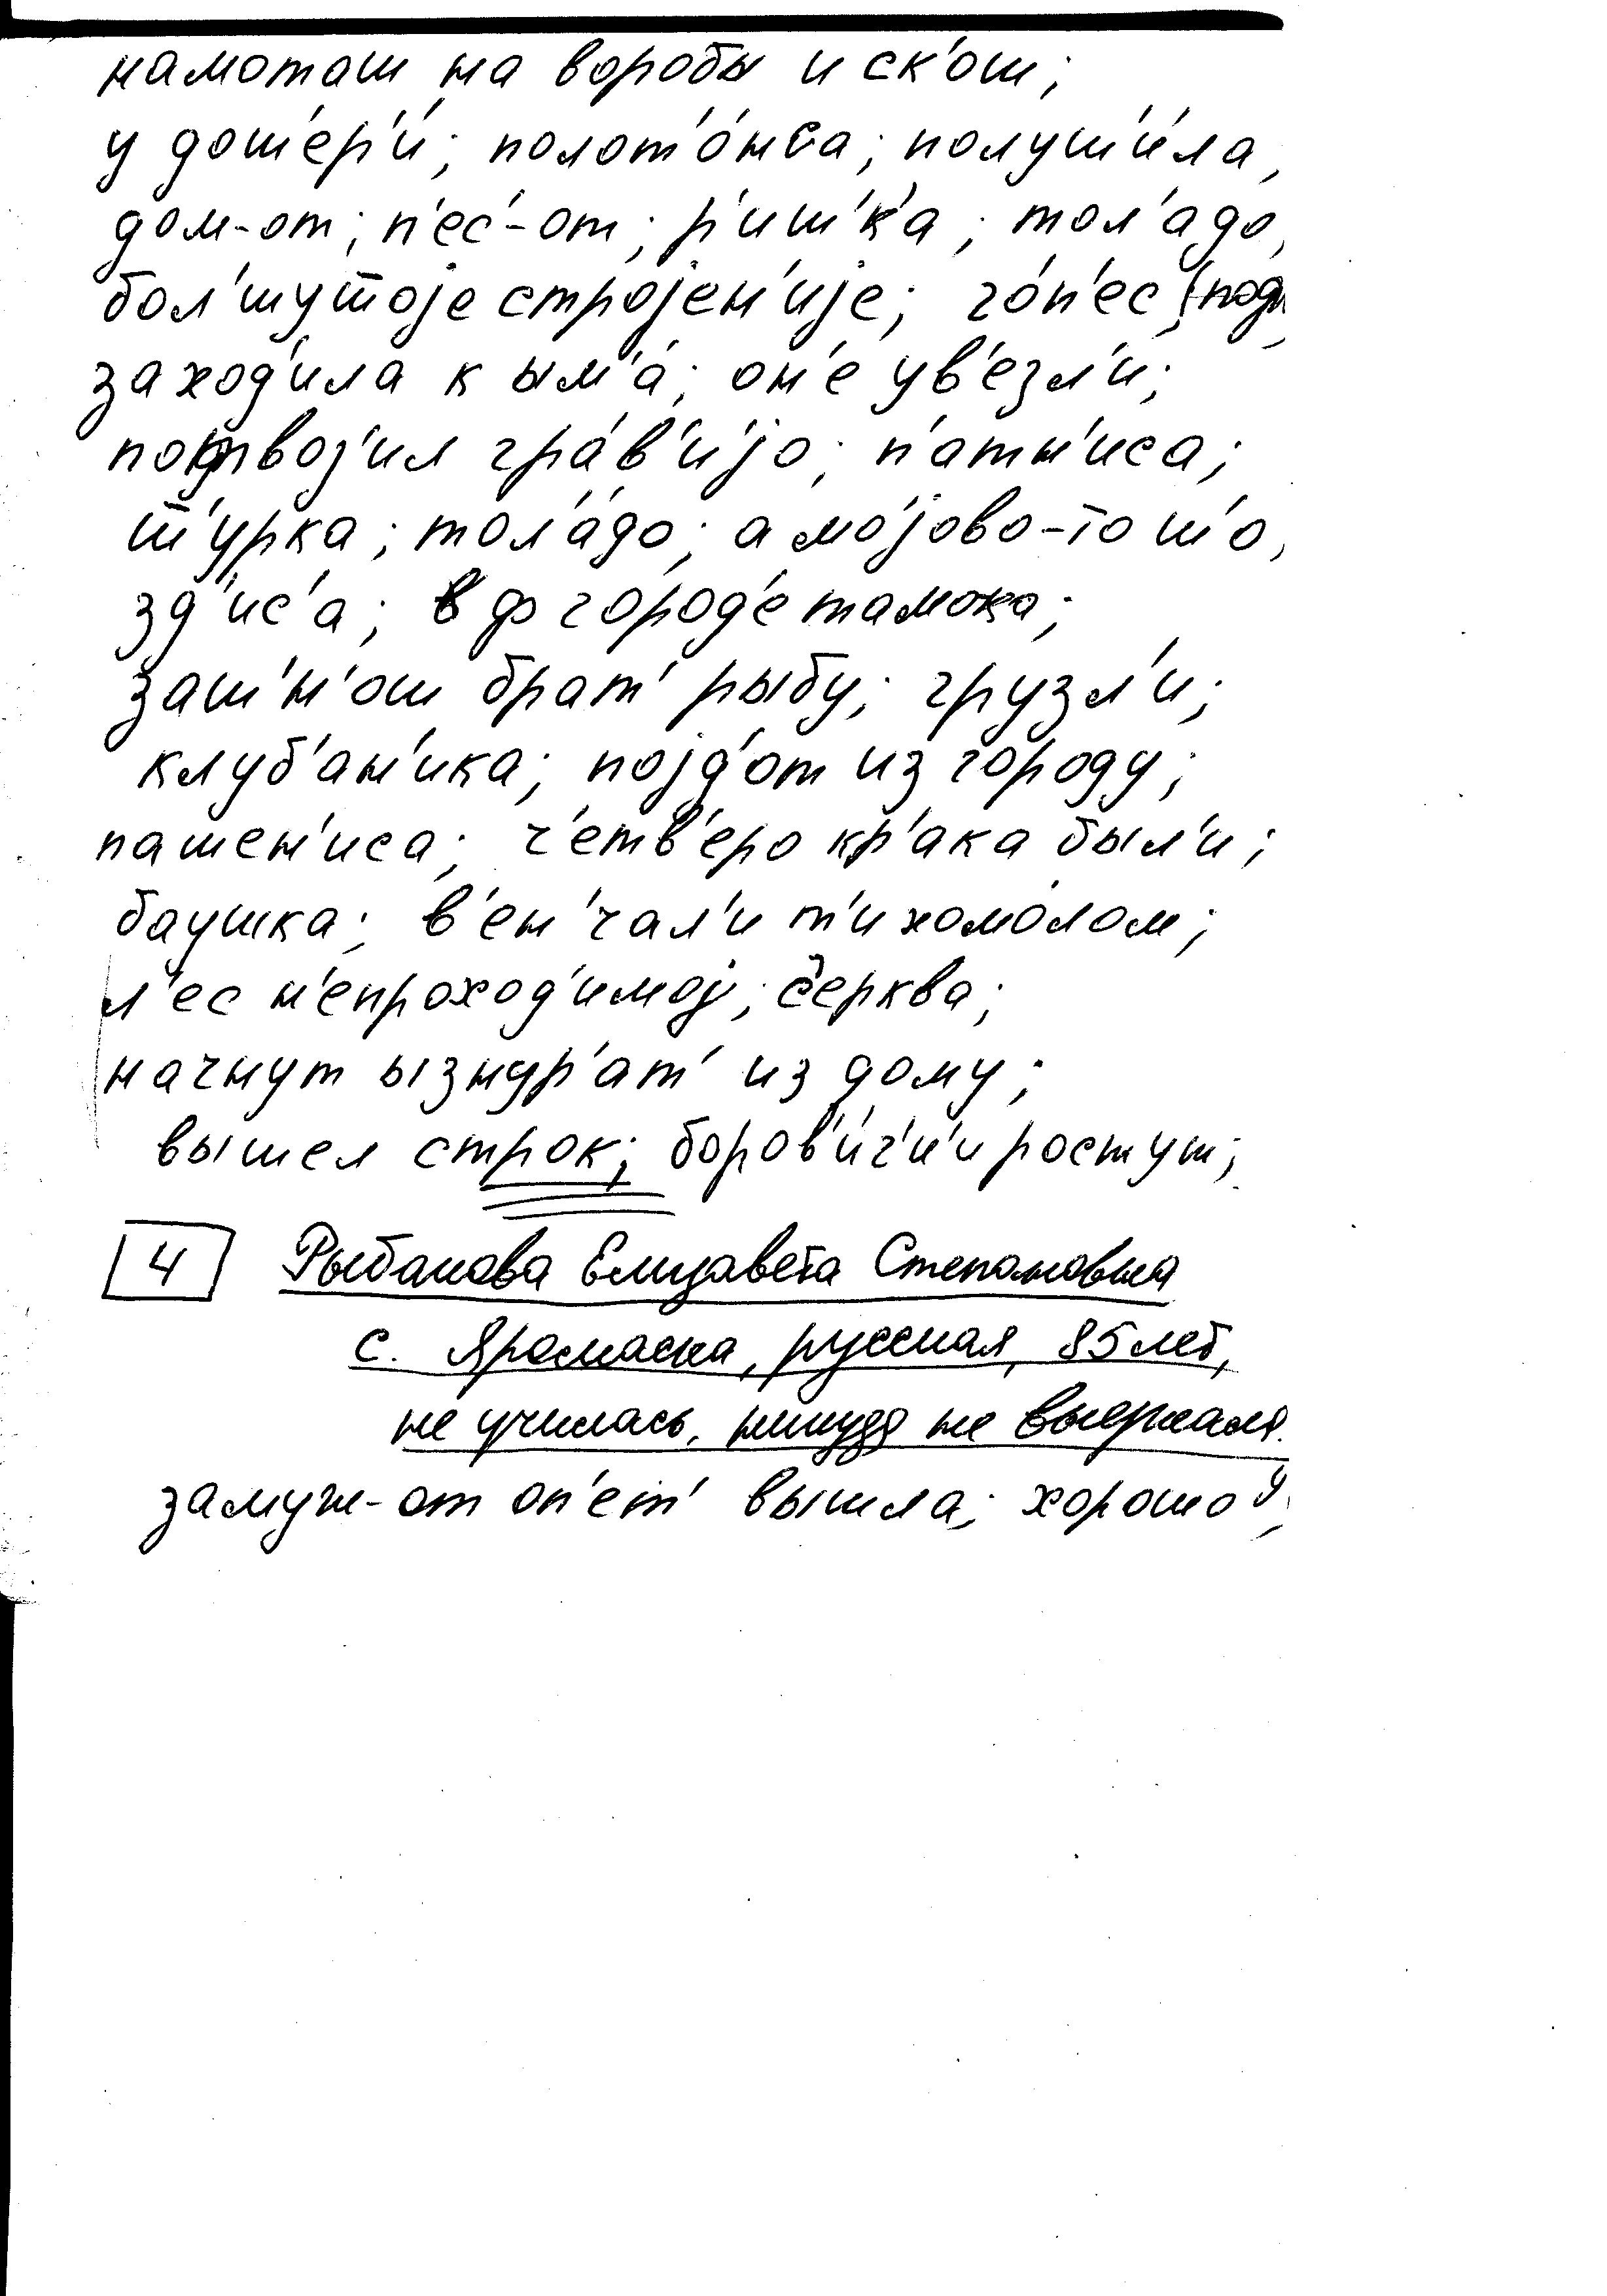 намоташ на воробы и ск'ош;
у дош'ер'и́; полот'о́нса; полуш'и́ла,
дом-от; п'ес'-от; р'иш'к'а; тол'адо,
бол'шуш̄оjе строjен'иjе; го́п'ес
заход'ила к ым'а́; он'е ув'езл'и;
гра́в'иjо; п'атн'иса;
ш'урка; тол'адо; а моjово-то ш'о,
зд'ис'а; в ф город'е тамока;
заш'н'ош брат' рыбу; грузл'и;
клуб'ан'ика; поjд'от из городу;
пашен'иса; ч'етв'еро кр'ака был'и;
баушка; в'ен'чал'и т'ихомолом;
л'ес н'епроход'имоj; с̌ерква;
начнут ызндр'ат' из дому;
вышел строк; боров'и́ч'и'и ростут;
4 Рыбакова Елизавета Степановна
с. Яромаска, русская, 85 лет,
не училась, никуда не выезжала.
замуж-от оп'ет' вышла; хорошо